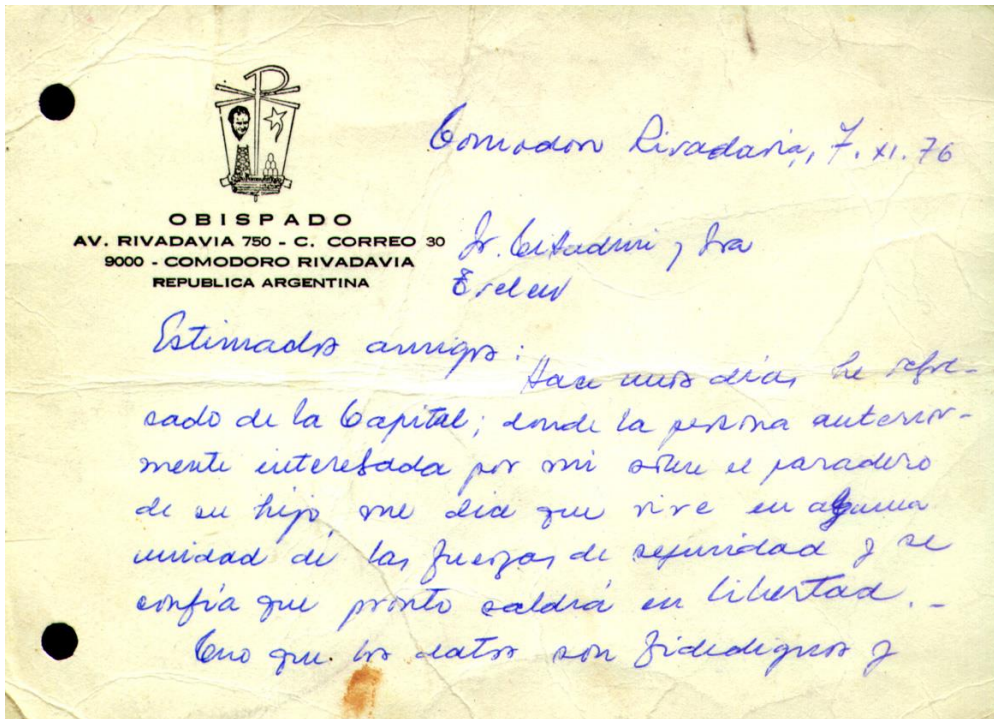 OBISPADO
AV. RIVADAVIA 750 - C. CORREO 30
9000 - COMODORO RIVADAVIA
REPUBLICA ARGENTINA
Comodoro Rivadavia, 7. XI. 76
Sr. y Sra
Trelew
Estimados amigos:
Hace unos días he regre-
sado de la Capital; donde la persona anterior-
mente interesada por mi sobre el paradero
de su hijo me dice que vive en alguna
unidad de las fuerzas de seguridad y se
confía que pronto saldrá en libertad.-
Creo que los datos son fidedignos y